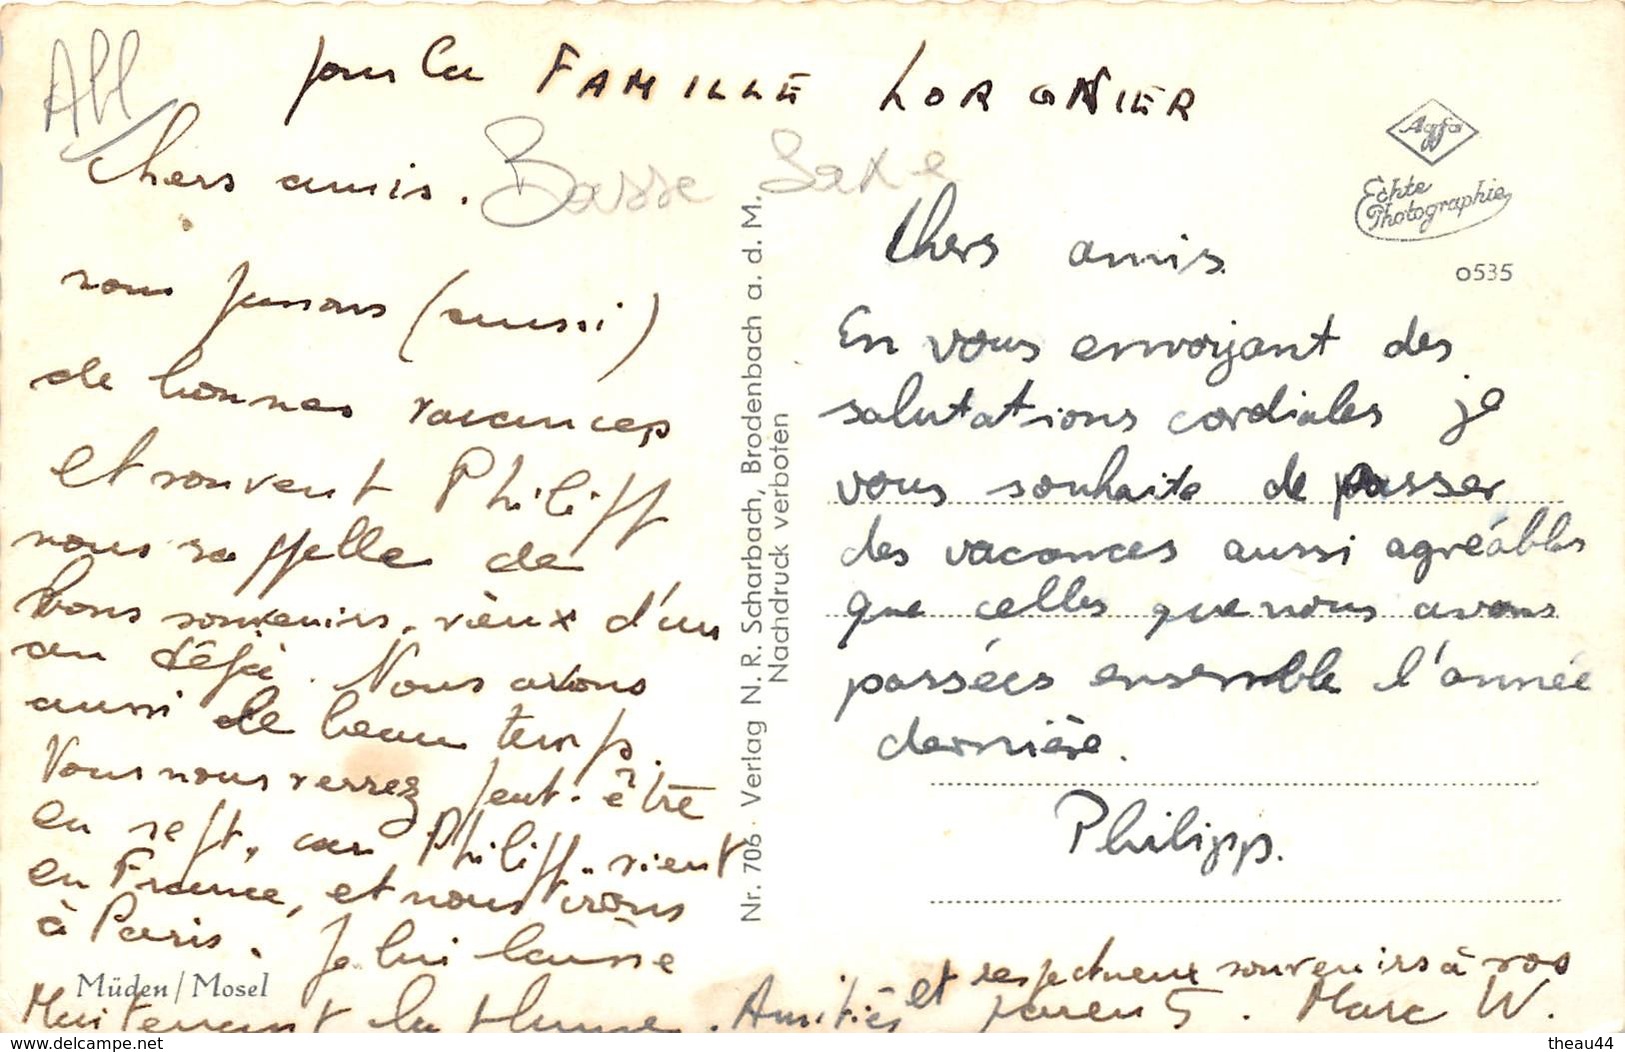 All
pour la FAMILLE LORGNIER
Basse Saxe
Chers amis.
nous passons (aussi)
de bonnes vacances
et souvent Philipp
nous rappelle de
bons souvenirs, vieux d'un
an déjà. Nous avons
aussi de beau temps.
Vous nous verrez peut-être
en sept, car Philipp. vient
en France, et nous irons
à Paris. Je lui laisse
Maintenant la plume. Amitiés et respectueux souvenirs à vos
parents. Marc W.
Müden/Mosel
Nr. 706 · Verlag N. R. Scharbach, Brodenbach a. d. M.
Nachdruck verboten
Agfa
Echte
Photographie
0535
Chers amis.
En vous envoyant des
salutations cordiales je
vous souhaite de passer
des vacances aussi agréables
que celles que nous avons
passées ensemble l'année
dernière.
Philipp.
www.delcampe.net
theau44